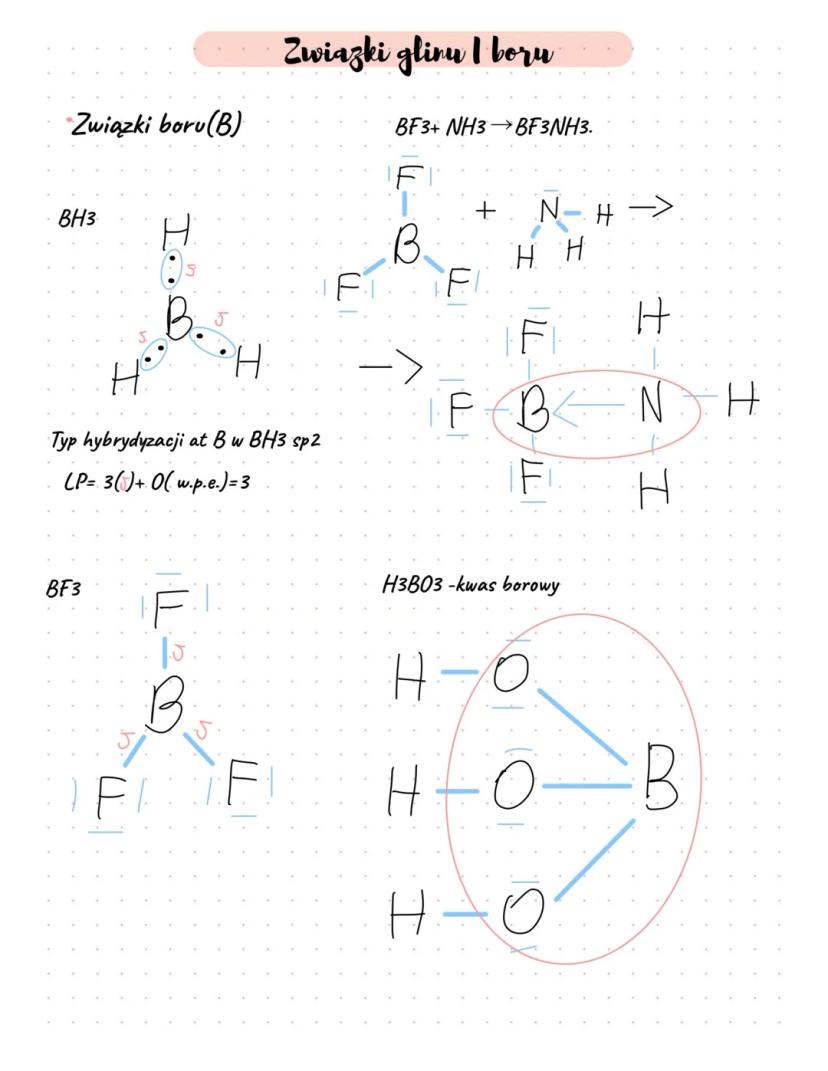 Związki glinu I boru
Związki boru(B)
BH3
H
5
B
5
5
H
H
Typ hybrydyzacji at B w BH3 sp2
LP= 3(5)+ 0( w.p.e.)=3
BF3+ NH3 → BF3NH3.
F
B
F
F
+
N H →
H H
→
F H
F B ← N H
F H
BF3
F
5
B
5
5
F
F
H3BO3 -kwas borowy
H O
H O B
H O